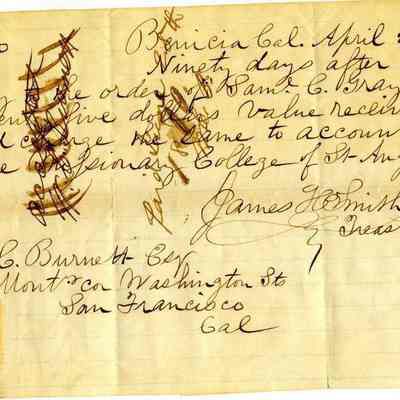 Benicia Cal. April
Ninety days after
the order of Saml. C. Gray
five dollars value receiv
charge the same to accoun
Missionary College of St. Aug
James H Smith
Treas
C. Burnett Esq
Mont & Cor Washington Sts
San Francisco
Cal